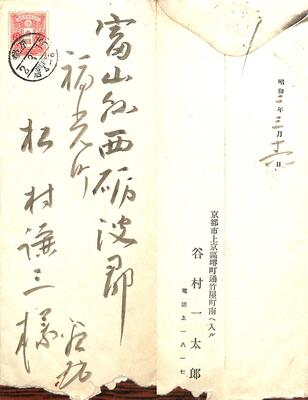 富山縣西砺波郡
福光町
松村謙三様
昭和二年三月十 日
京都市上京區堺町通竹屋町南へ入ル
谷村一太郎
電話上一八一七